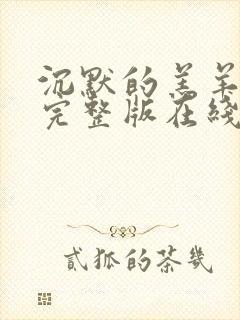 沉默的羔羊
完整版在线
贰狐的茶几